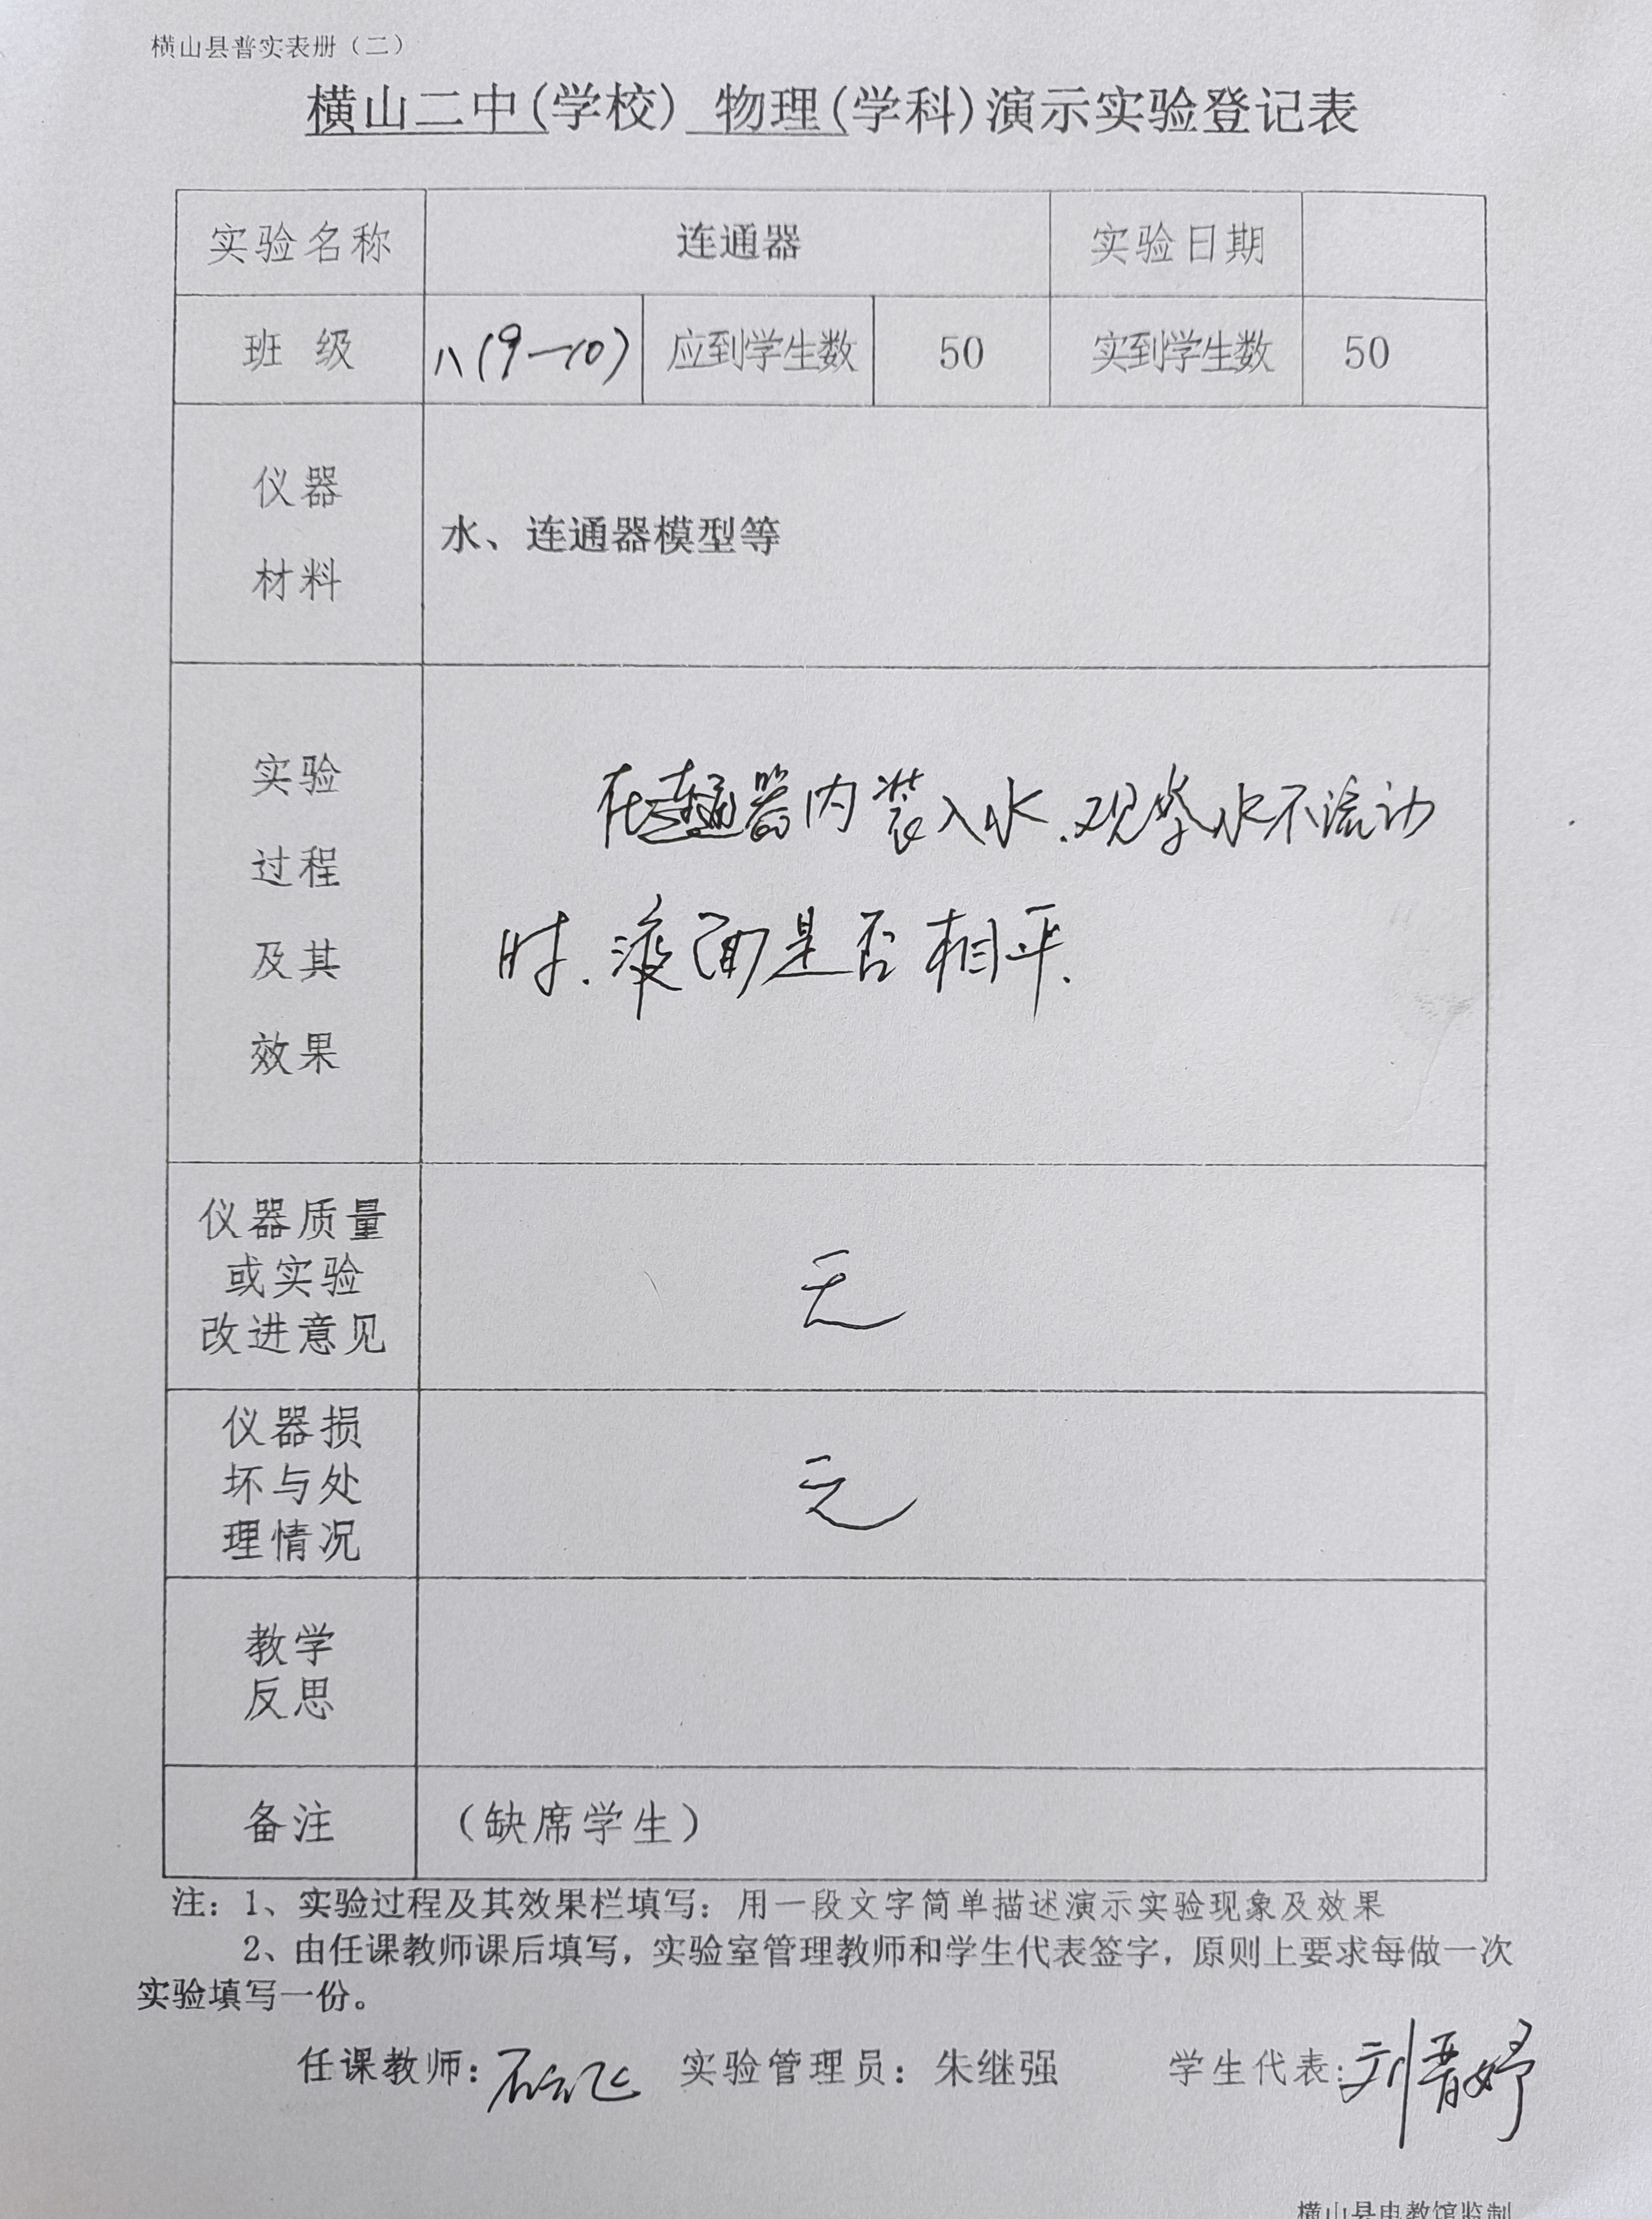 横山县普实表册（二）
横山二中(学校) 物理(学科)演示实验登记表
实验名称 连通器 实验日期
班 级 八(9—10) 应到学生数 50 实到学生数 50
仪器
材料
水、连通器模型等
实验
过程
及其
效果
在连通器内装入水.观察水不流动
时.液面是否相平.
仪器质量
或实验
改进意见
无
仪器损
坏与处
理情况
无
教学
反思
备注 （缺席学生）
注：1、实验过程及其效果栏填写：用一段文字简单描述演示实验现象及效果
2、由任课教师课后填写，实验室管理教师和学生代表签字，原则上要求每做一次
实验填写一份。
任课教师：石云飞 实验管理员：朱继强 学生代表：刘晋妤
横山县电教馆监制